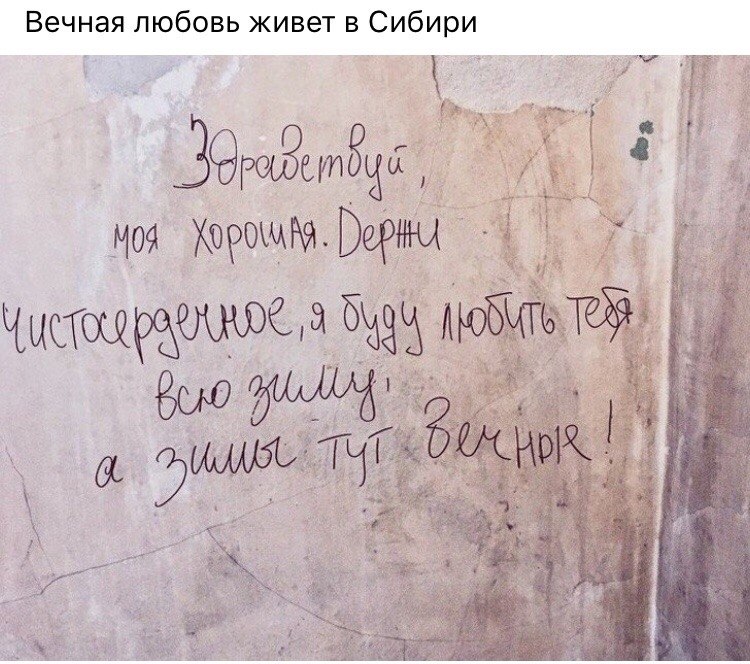 Вечная любовь живет в Сибири
Здравствуй,
моя хорошая. Держи
чистосердечное, я буду любить тебя
всю зиму,
а зимы тут вечные!